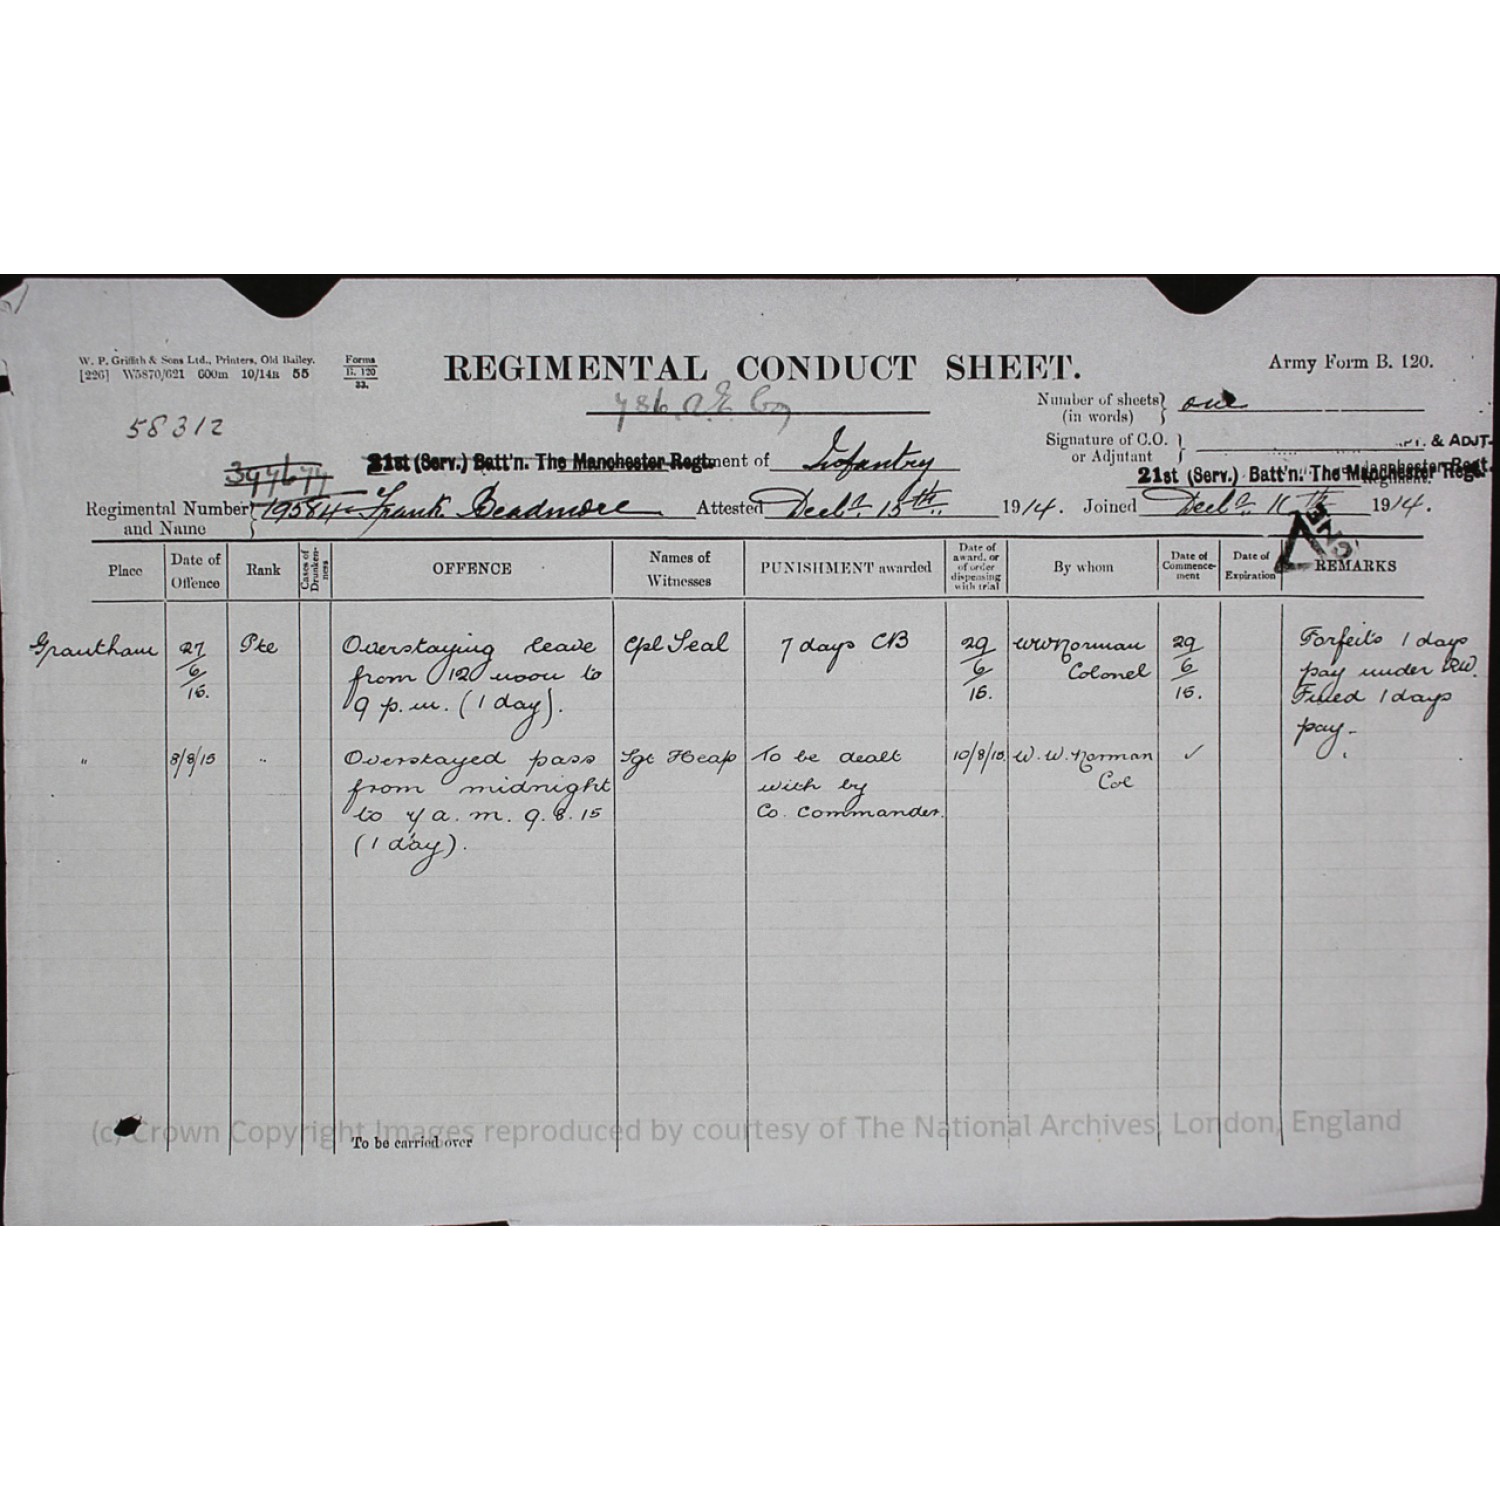 W. P. Griffith & Sons Ltd., Printers, Old Bailey.
[226] W5870/621 600m 10/14B 55
Forms
B. 120
33.
REGIMENTAL CONDUCT SHEET.
Army Form B. 120.
Number of sheets (in words) one
58312
Signature of C.O. or Adjutant
& ADJT.
21st (Serv.) Batt'n. The Manchester Regt.
ment of Infantry
21st (Serv.) Batt'n. The Manchester Regt.
Regimental Number and Name 19584 Frank Beadmore Attested Decbr 15th 1914. Joined Decbr 1914.
Place
Date of Offence
Rank
Cases of Drunkenness
OFFENCE
Names of Witnesses
PUNISHMENT awarded
Date of award, or of order dispensing with trial
By whom
Date of Commencement
Date of Expiration
REMARKS
Grantham 27/6/15. Pte Overstaying leave Cpl Seal 7 days CB 29/6/15. WWNorman 29/6/15. Forfeits 1 days
from 12 noon to Colonel pay under RW.
9 p.m. (1 day). Fined 1 days
pay.
" 8/8/15 " Overstayed pass Sgt Heap To be dealt 10/8/15 W. W. Norman ✓
from midnight with by Col
to 7 a. m. 9.8.15 Co. Commander.
(1 day).
To be carried over
(c) Crown Copyright Images reproduced by courtesy of The National Archives, London, England